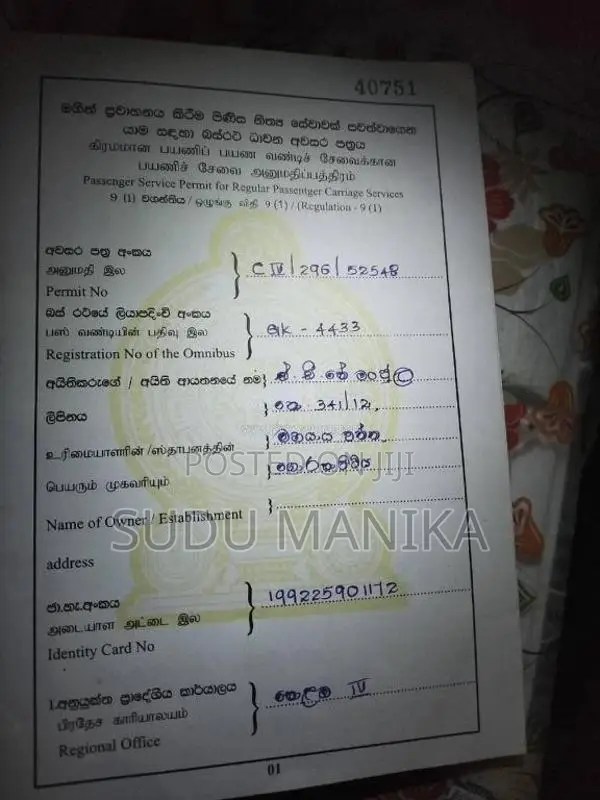 40751
මගින් ප්‍රවාහනය කිරීම පිණිස නිත්‍ය සේවාවක් පවත්වාගෙන
යාම සඳහා බස්රථ ධාවන අවසර පත්‍රය
கிரமமான பயணிப் பயண வண்டிச் சேவைக்கான
பயணிச் சேவை அனுமதிப்பத்திரம்
Passenger Service Permit for Regular Passentger Carriage Services
9 (1) වගන්තිය / ஒழுங்கு விதி 9 (1) / (Regulation - 9 (1)
අවසර පත්‍ර අංකය
அனுமதி இல
Permit No
C IV / 296 / 52548
බස් රථයේ ලියාපදිංචි අංකය
பஸ் வண்டியின் பதிவு இல
Registration No of the Omnibus
- 4433
අයිතිකරුගේ / අයිති ආයතනයේ නම
ලිපිනය
341/12,
உரிமையாளரின் /ஸ்தாபனத்தின்
பெயரும் முகவரியும்
POSTED ON JIJI
Name of Owner / Establishment
SUDU MANIKA
address
ජා.හැ.අංකය
அடையாள அட்டை இல
Identity Card No
199225901172
1.අනුයුක්ත ප්‍රාදේශීය කාර්යාලය
பிரதேச காரியாலயம்
Regional Office
IV
01